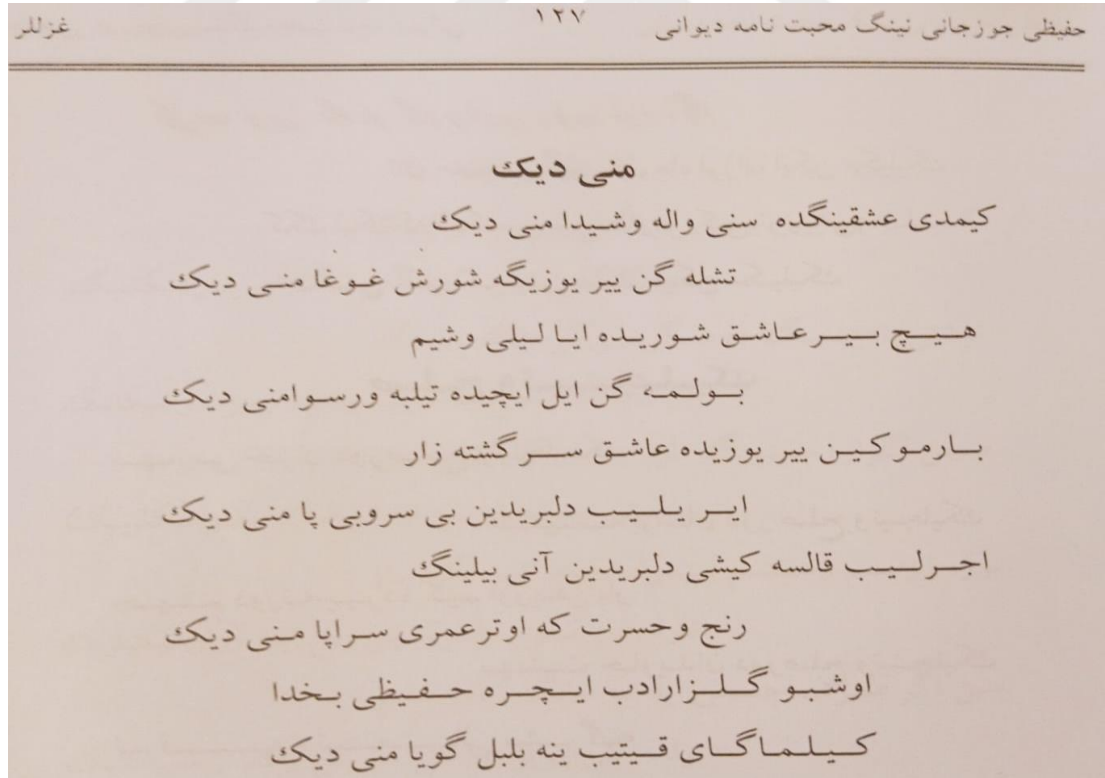 حفیظی جوزجانی نینگ محبت نامه دیوانی ۱۲۷ غزللر
منی دیک
کیمدی عشقینگده سنی واله وشیدا منی دیک
تشله گن ییر یوزیگه شورش غوغا منی دیک
هیچ بیر عاشق شوریده ایا لیلی وشیم
بولمه گن ایل ایچیده تیلبه ورسوامنی دیک
بارمو کین ییر یوزیده عاشق سرگشته زار
ایریلیب دلبریدین بی سروبی پا منی دیک
اجرلیب قالسه کیشی دلبریدین آنی بیلینگ
رنج وحسرت که اوترعمری سراپا منی دیک
اوشبو گلزارادب ایچره حفیظی بخدا
کیلماگای قیتیب ینه بلبل گویا منی دیک